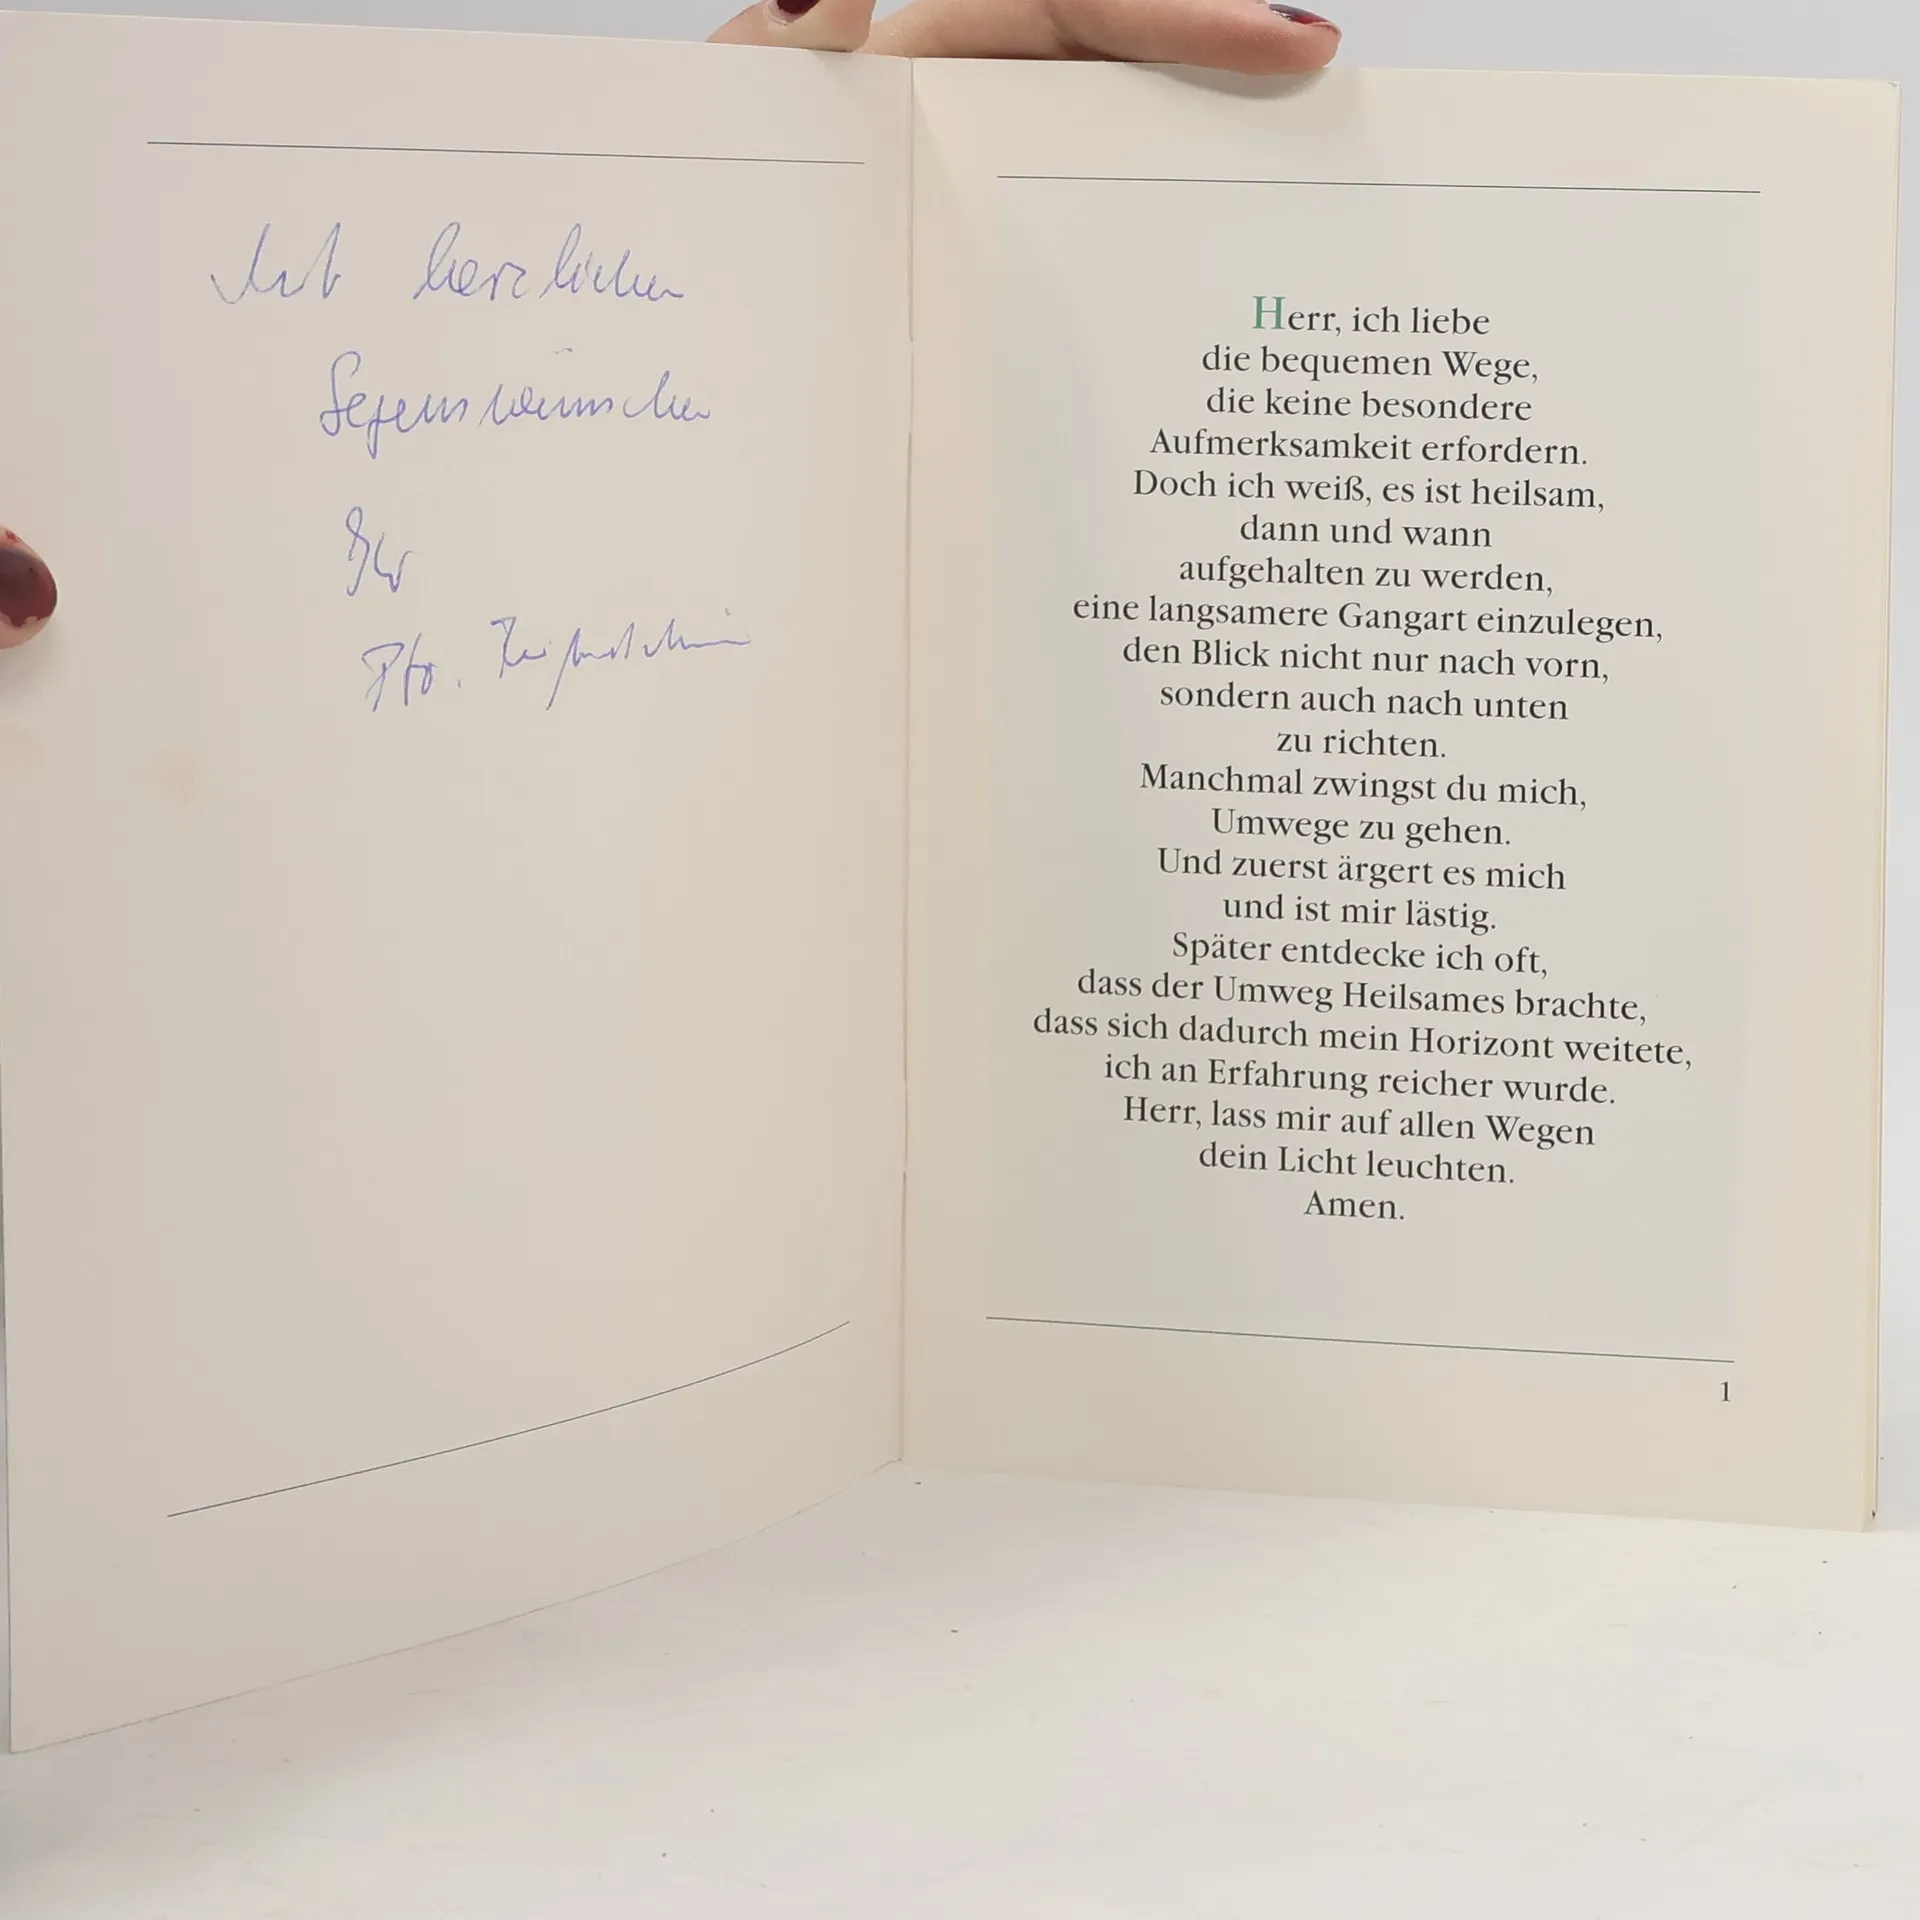 Mit herzlichen
Segenswünschen
Ihr
Pfr.
Herr, ich liebe
die bequemen Wege,
die keine besondere
Aufmerksamkeit erfordern.
Doch ich weiß, es ist heilsam,
dann und wann
aufgehalten zu werden,
eine langsamere Gangart einzulegen,
den Blick nicht nur nach vorn,
sondern auch nach unten
zu richten.
Manchmal zwingst du mich,
Umwege zu gehen.
Und zuerst ärgert es mich
und ist mir lästig.
Später entdecke ich oft,
dass der Umweg Heilsames brachte,
dass sich dadurch mein Horizont weitete,
ich an Erfahrung reicher wurde.
Herr, lass mir auf allen Wegen
dein Licht leuchten.
Amen.
1